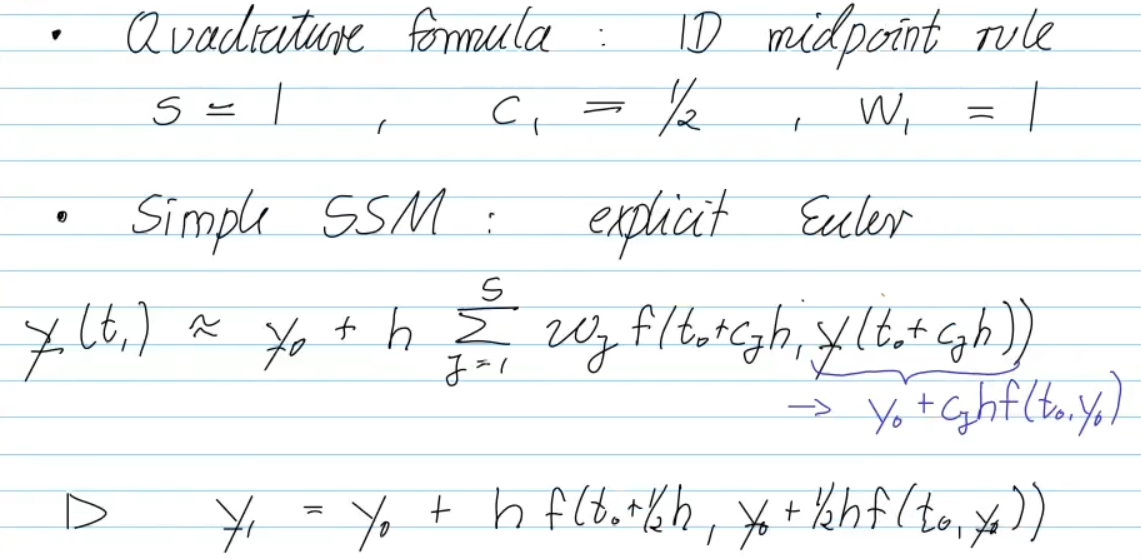 • Quadrature formula : 1D midpoint rule
s = 1 , c₁ = 1/2 , w₁ = 1
• Simple SSM : explicit Euler
y(t₁) ≈ y₀ + h ∑_{j=1}^{s} w_j f(t₀+c_j h, y(t₀+c_j h))
→ y₀ + c_j h f(t₀, y₀)
▷ y₁ = y₀ + h f(t₀+½h, y₀+½h f(t₀, y₀))